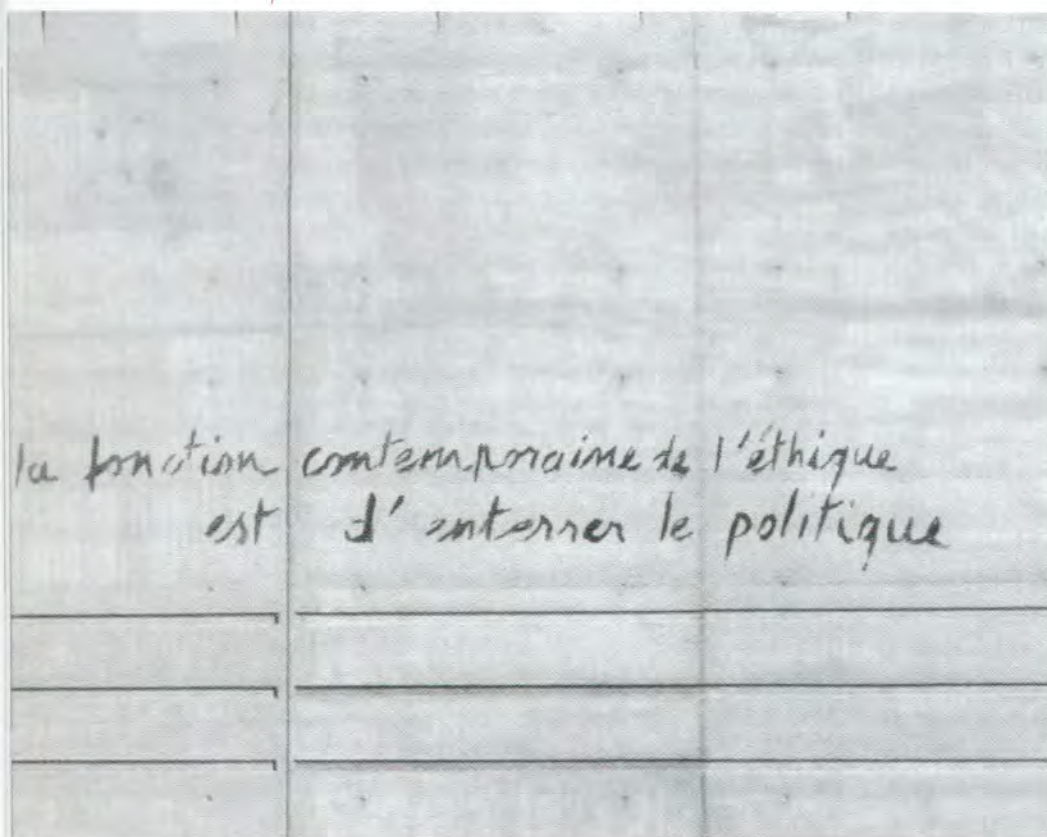 la fonction contemporaine de l'éthique
est d'enterrer le politique